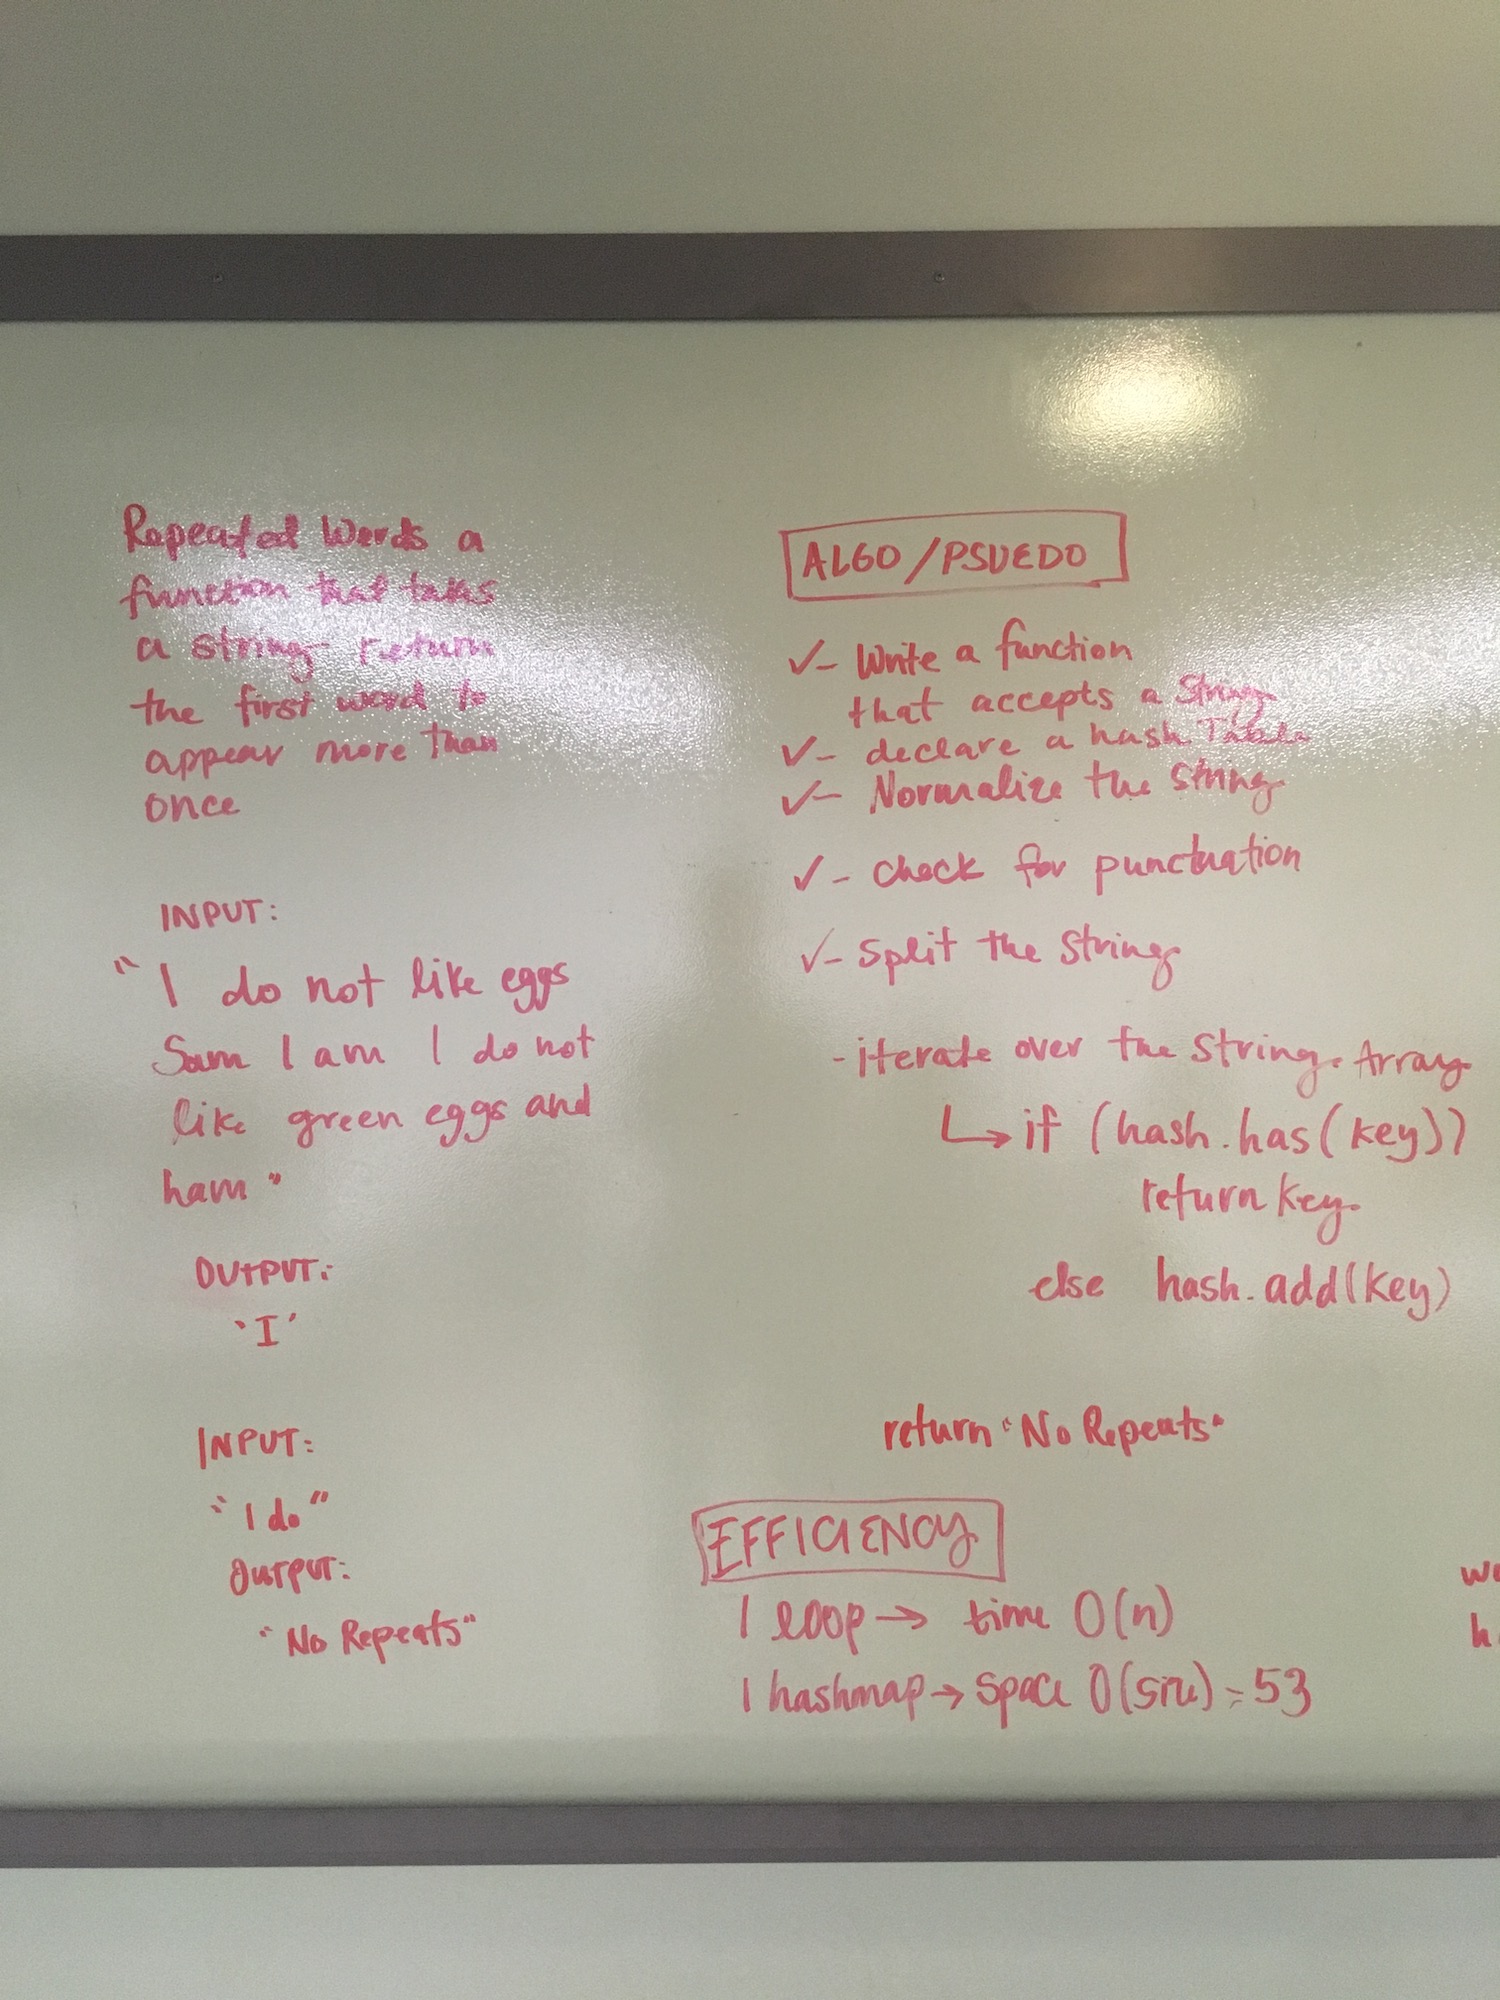 Repeated Words a
function that takes
a string return
the first word to
appear more than
once
INPUT:
"I do not like eggs
Sam I am I do not
like green eggs and
ham"
OUTPUT:
'I'
INPUT:
"I do"
OUTPUT:
"No Repeats"
ALGO/PSUEDO
✓- Write a function
that accepts a string
✓- declare a hash Table
✓- Normalize the string
✓- check for punctuation
✓- Split the string
- iterate over the string Array
↳ if (hash.has(key))
return key
else hash.add(key)
return "No Repeats"
EFFICIENCY
1 loop → time O(n)
1 hashmap → space O(size) = 53